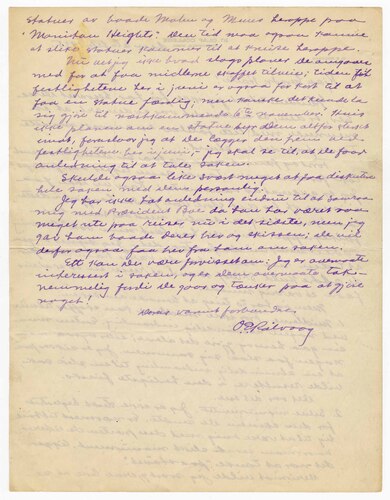 statuer av baade Molee og Meus heroppe paa
"Manitou Heights". Den tid maa ogsaa komme
at slike statuer kommer til at kneise heroppe.
Nu vet jeg ikke hvad slags planer De omgaaes
med for at faa midlerne skaffet tilveie; tiden før
festlighetene her i juni er ogsaa for kort til at
faa en statue færdig, men kanske det kunde la
sig gjøre til næstkommende 6te November. Hvis
ikke planen om en statue byr Dem altfor sterkt
imot, foreslår jeg at De lægger den frem ved
festlighetene her i juni; jeg skal se til, at De faar
anledning til at tale saken.
Skulde ogsaa like svært meget at faa diskutere
hele saken med Dem personlig.
Jeg har ikke hat anledning endnu til at samraa
mig med President Boe da han har været saa
meget ute paa reiser nu i det sidste, men jeg
gav ham baade Deres brev og skissen; De vil
derfor ogsaa faa høre fra ham om saken.
Ett kan De være forvisset om: Jeg er overmaate
interessert i saken, og er Dem overmaate tak-
nemmelig fordi De gaar og tænker paa at gjøre
noget!
Deres varmt forbundne,
O. E. Rølvaag